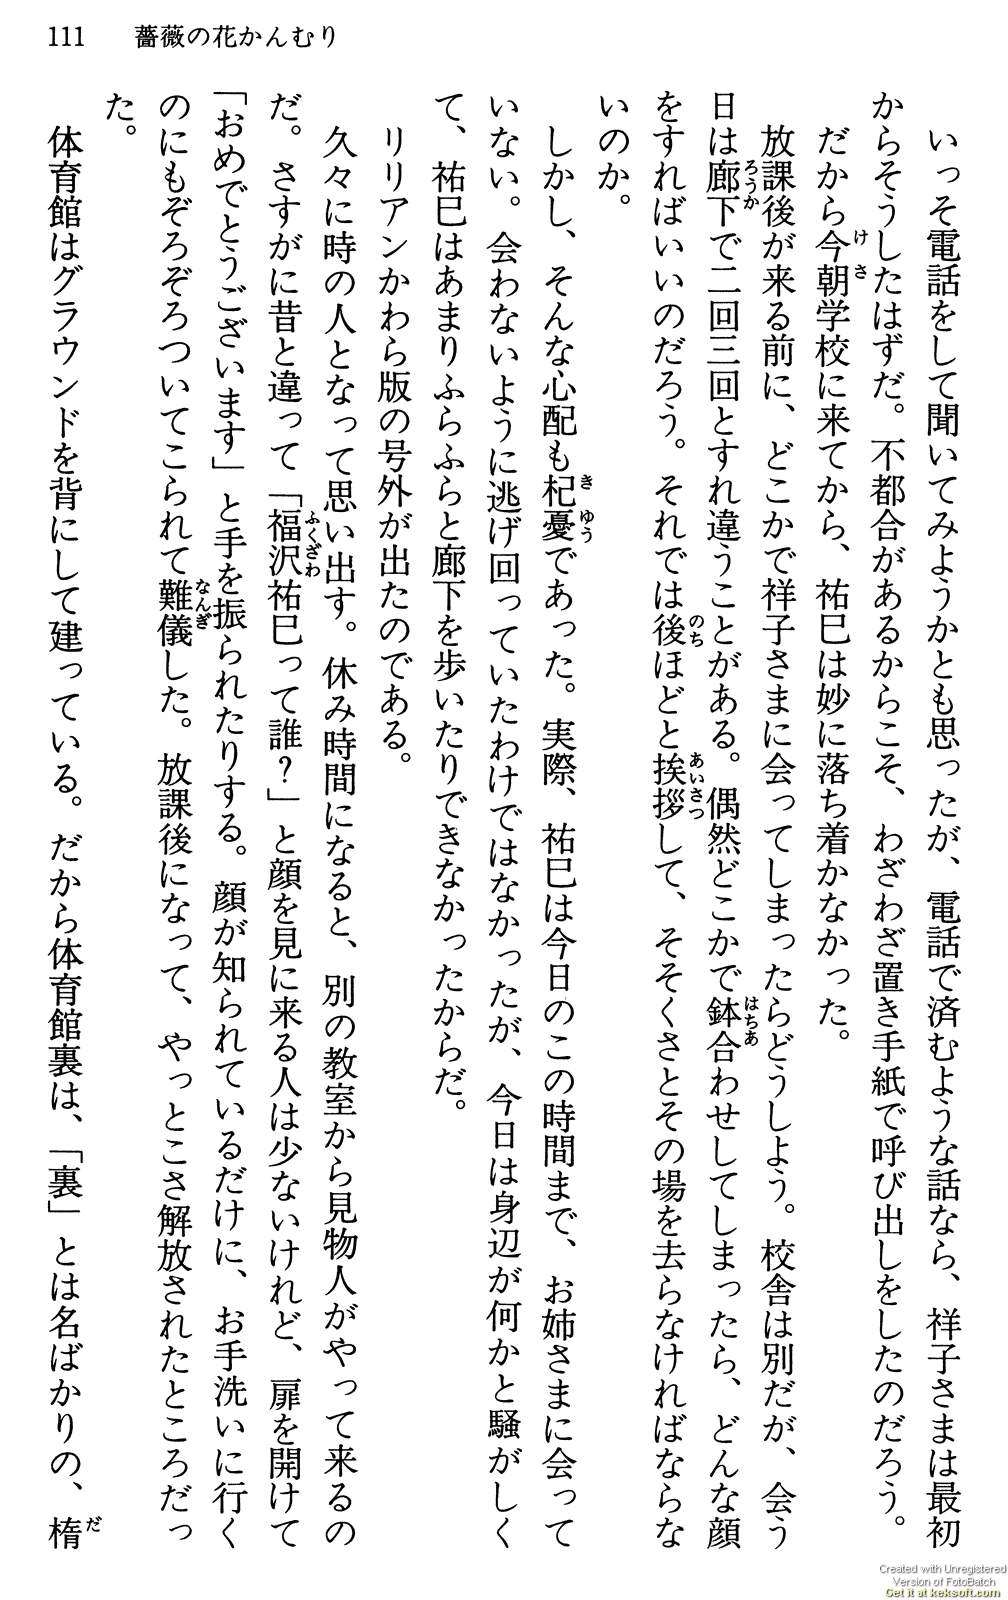 111　薔薇の花かんむり
　いっそ電話をして聞いてみようかとも思ったが、電話で済むような話なら、祥子さまは最初
からそうしたはずだ。不都合があるからこそ、わざわざ置き手紙で呼び出しをしたのだろう。
　だから今朝学校に来てから、祐巳は妙に落ち着かなかった。
　放課後が来る前に、どこかで祥子さまに会ってしまったらどうしよう。校舎は別だが、会う
日は廊下で二回三回とすれ違うことがある。偶然どこかで鉢合わせしてしまったら、どんな顔
をすればいいのだろう。それでは後ほどと挨拶して、そそくさとその場を去らなければならな
いのか。
　しかし、そんな心配も杞憂であった。実際、祐巳は今日のこの時間まで、お姉さまに会って
いない。会わないように逃げ回っていたわけではなかったが、今日は身辺が何かと騒がしく
て、祐巳はあまりふらふらと廊下を歩いたりできなかったからだ。
　リリアンかわら版の号外が出たのである。
　久々に時の人となって思い出す。休み時間になると、別の教室から見物人がやって来るの
だ。さすがに昔と違って「福沢祐巳って誰？」と顔を見に来る人は少ないけれど、扉を開けて
「おめでとうございます」と手を振られたりする。顔が知られているだけに、お手洗いに行く
のにもぞろぞろついてこられて難儀した。放課後になって、やっとこさ解放されたところだっ
た。
　体育館はグラウンドを背にして建っている。だから体育館裏は、「裏」とは名ばかりの、楕
Created with Unregistered
Version of FotoBatch
Get it at keksoft.com